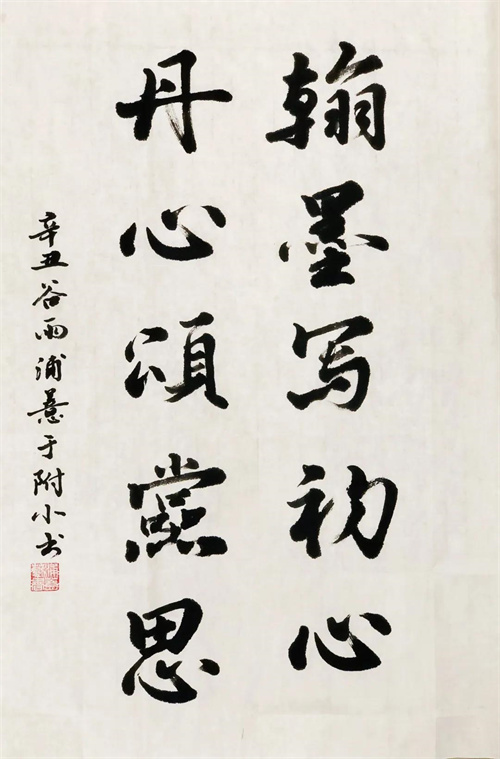 翰墨写初心
丹心頌黨思
辛丑谷雨浦于附小书